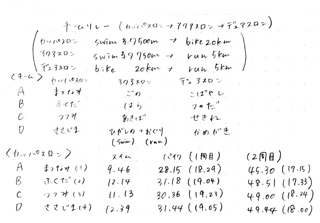 チームリレー (カッパスロン → アクアスロン → デュアスロン)
カッパスロン swim 約500m → bike 20km
アクアスロン swim 約750m → run 5km
デュアスロン bike 20km → run 5km
(チーム) カッパスロン アクアスロン デュアスロン
A まつなお ごの こばやし
B ふくだ はら つのだ
C つつみ あきば せきね
D ささじま ひがしの → おぐり かめがき
(swim) (run)
(カッパスロン) スイム バイク (1周目) (2周目)
A まつなお (1) 9.46 28.15 (18.29) 45.30 (17.15)
B ふくだ (2) 12.14 31.18 (19.04) 48.51 (17.33)
C つつみ (3) 11.13 30.36 (19.23) 49.00 (18.24)
D ささじま (4) 12.39 31.44 (19.05) 49.44 (18.00)